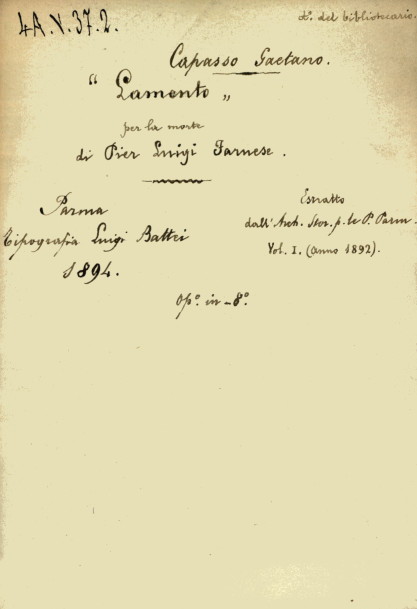 4A.V.37.2.
dº. del bibliotecario.
Capasso Gaetano.
“ Lamento „
per la morte
di Pier Luigi Farnese.
Parma
Tipografia Luigi Battei
1894.
Estratto
dall'Arch. Stor. p. le P. Parm.
Vol. I. (anno 1892).
Opº. in-8º.